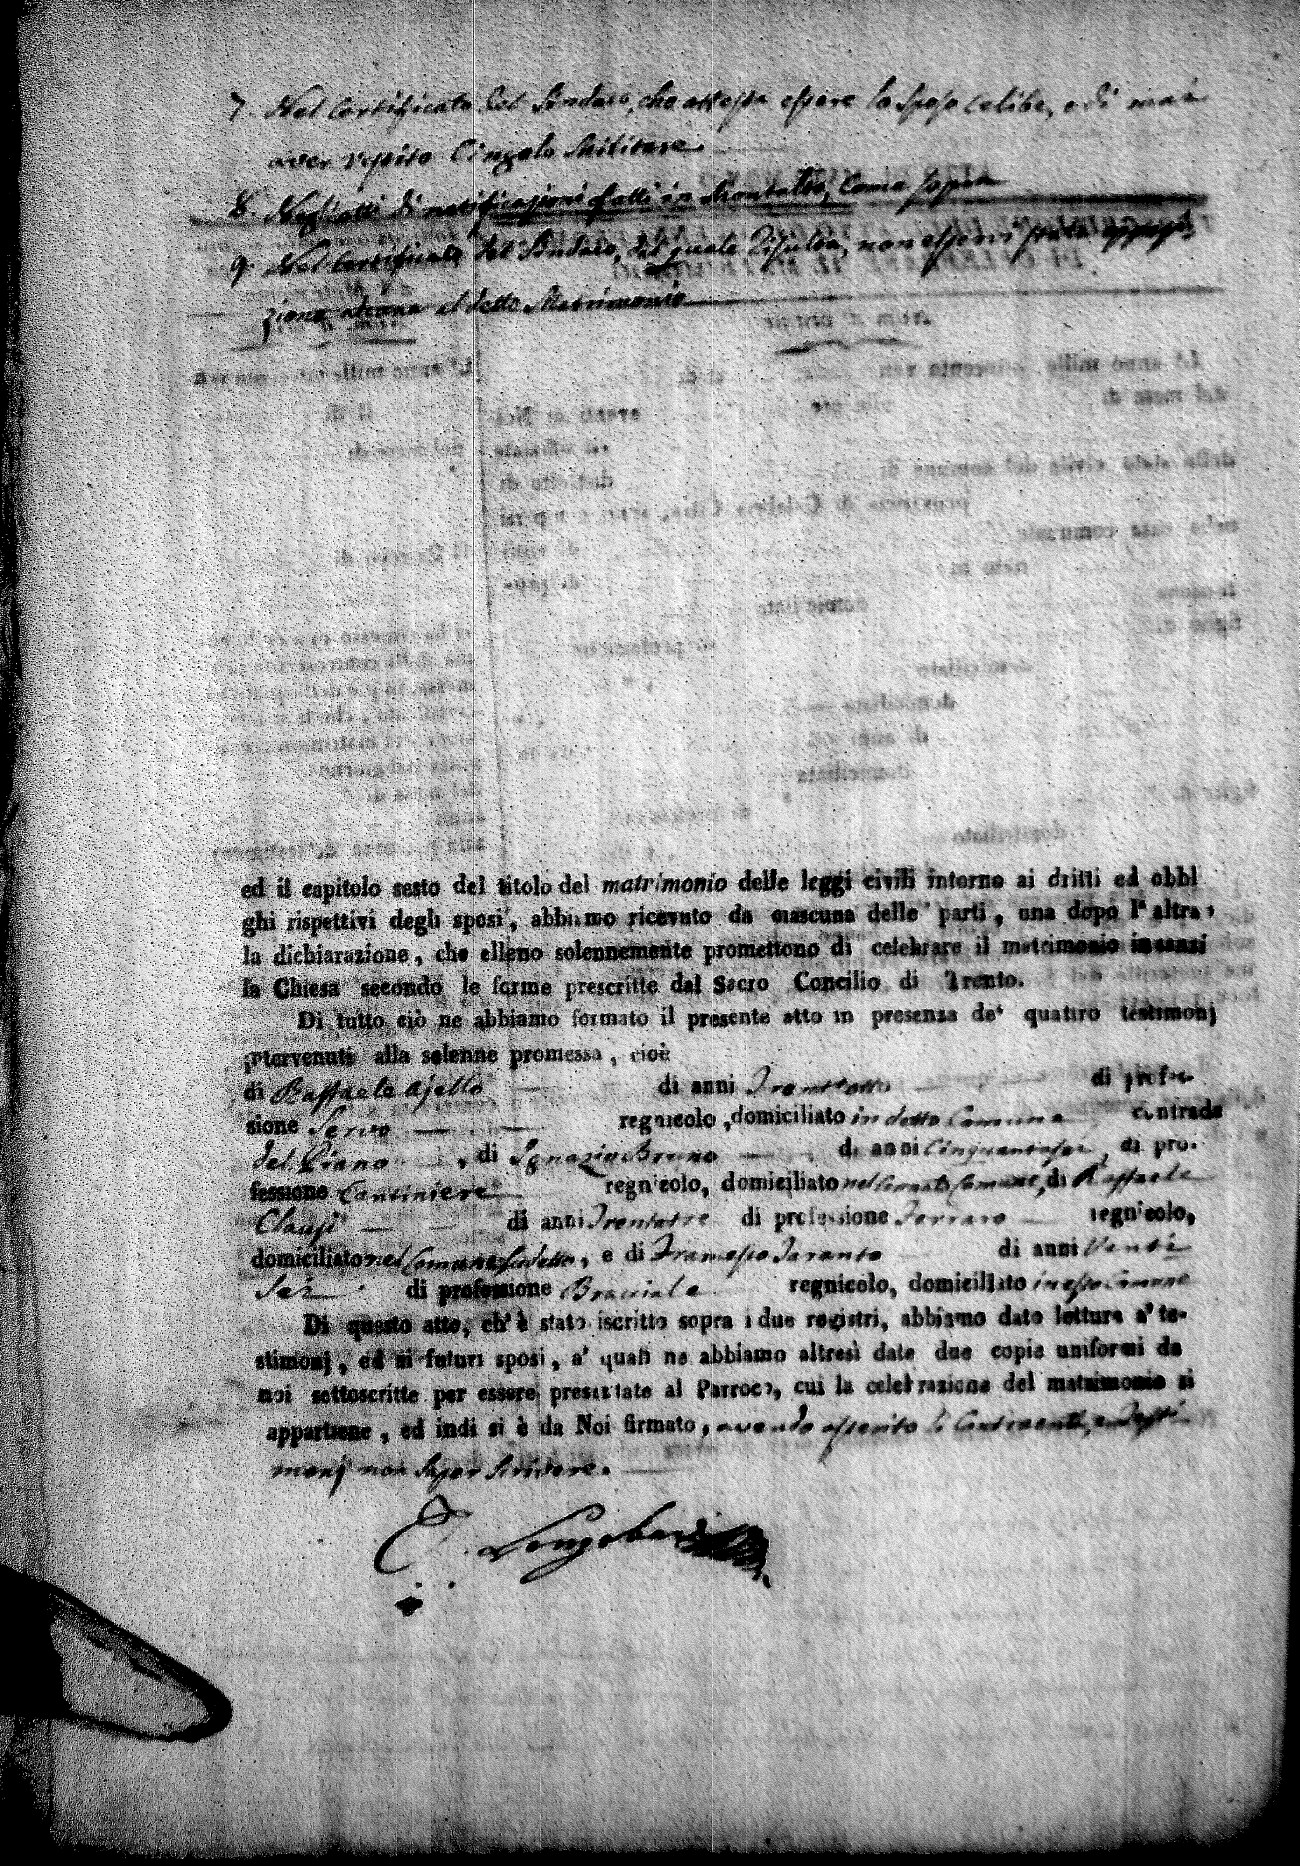 7. Nel Certificato del Sindaco, che attesta essere lo sposo celibe, e di mai
aver vestito Cingolo Militare
8. Negli atti di notificazioni fatti in Montalto, come sopra
9. Nel Certificato del Sindaco, dal quale risulta, non esservi stata opposi
zione alcuna al detto Matrimonio
ed il capitolo sesto del titolo del matrimonio delle leggi civili intorno ai dritti ed obbl
ghi rispettivi degli sposi, abbiamo ricevuto da ciascuna delle parti, una dopo l'altra,
la dichiarazione, che elleno solennemente promettono di celebrare il matrimonio innanzi
la Chiesa secondo le forme prescritte dal Sacro Concilio di Trento.
Di tutto ciò ne abbiamo formato il presente atto in presenza de' quattro testimonj
intervenuti alla solenne promessa, cioè
di Raffaele Ajello di anni Trentotto di profes-
sione Servo regnicolo, domiciliato in detto Comune contrada
del Piano, di Ignazio Bruno di anni Cinquantasei, di pro-
fessione Cantiniere regnicolo, domiciliato nel Comune, di Raffaele
di anni Trentatre di professione Ferraro regnicolo,
domiciliato nel Comune sudetto, e di Francesco Taranto di anni Venti
Sei di professione Bracciale regnicolo, domiciliato in esso Comune
Di questo atto, ch'è stato iscritto sopra i due registri, abbiamo dato lettura a' te-
stimonj, ed ai futuri sposi, a' quali ne abbiamo altresì date due copie uniformi da
noi sottoscritte per essere presentate al Parroco, cui la celebrazione del matrimonio si
appartiene, ed indi si è da Noi firmato, avendo asserito i Contraenti, e testi
monj non saper scrivere.